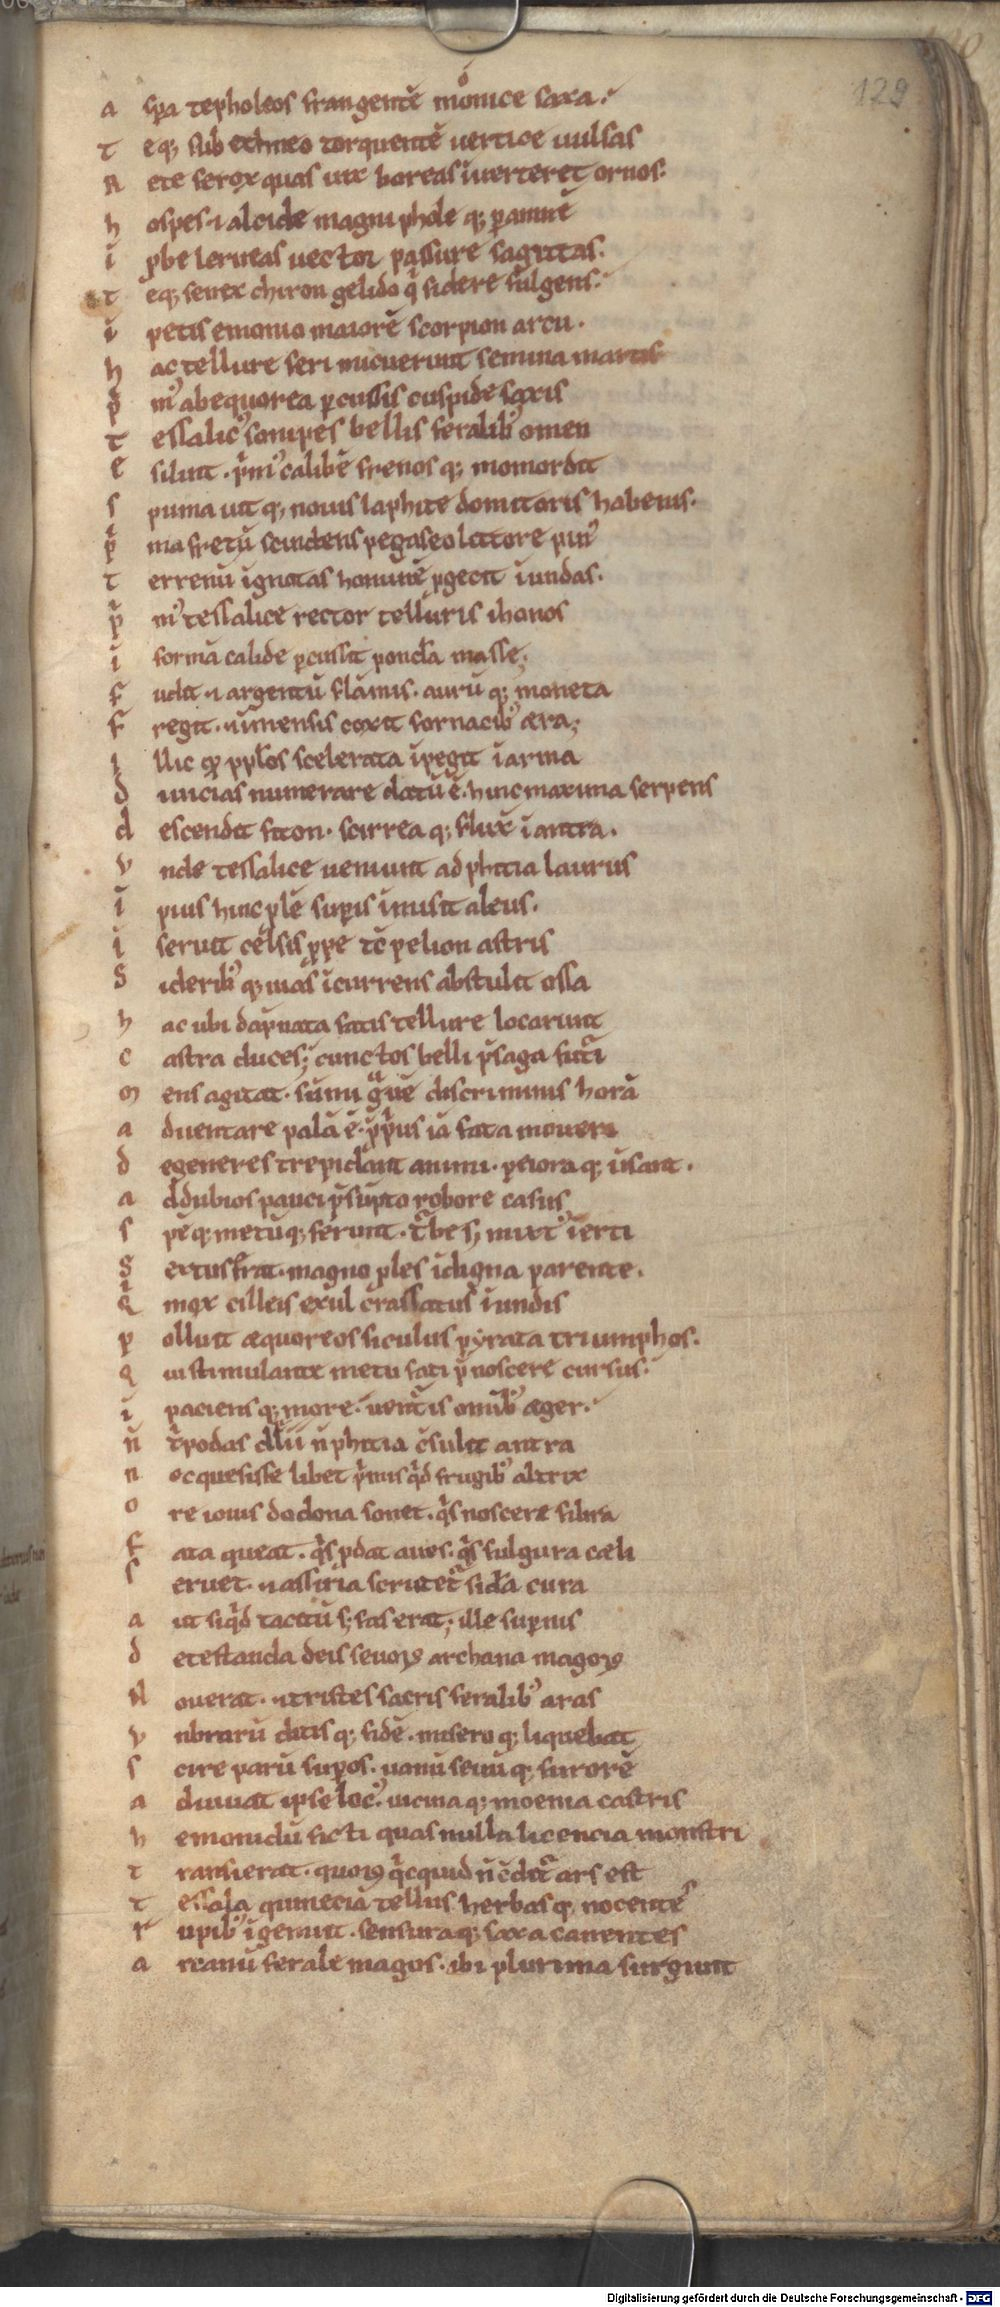 129
a spa tepholeos frangentē monice saxa.
T eq; sub ethneo torquentē uertice uulsas
R ete ferox quas uix boreas īuerteret ornos.
h ospes & alcide magni phole q; pamnē
i pbe lerneas uector passure sagittas.
T eq; senex chiron gelido q̇ sidere fulgens.
i petis emonio maiorē scorpion arcu.
h ac tellure feri micuerunt semina martis
p̄ m᾿ ab equorea pcussis cuspide saxis
T essalic᾿ sonipes bellis feralib᾿ omen
e siluit. p̄m᾿ calibē frenos q; momordit
s puma uit q; nouis laphite domitoris habenis.
p̍ ma fretū scindens pegaseo littore pin᾿
T errenū ignotas hominē pgecit īundas.
p̍ m᾿ tessalice rector telluris ihonos
i formā calide pcussit ponda masse;
f udit & argentū flāmis. aurū q; moneta
f regit. īmensis coxit fornacib᾿ æra;
i llic qđ pplos scelerata īpegit īarma
d iuicias numerare datū ē. hinc maxuma serpens
d escendit fiton. scirrea q; fluxᷓ īantra.
v nde tessalice ueniunt ad phitia laurus
ī pius hinc plē supis īmisit aleus.
ī seruit celsis ppe tē pelion astris
S iderib᾿ q; uias īcurrens abstulit ossa
h ac ubi dāpnata fatis tellure locarunt
c astra duces; cunctos belli p̄saga futi
m ens agitat. sūmi guē discriminis horā
a duentare palā ē. ppius iā fata mouere
d egeneres trepidant animi. peiora q; ūsant.
a d dubios pauci p̄sūpto robore casus
s pēq; metūq; ferunt. tᷓbe s; mixt᾿ īerti
S extus erat. magno ples īdigna parente.
q̍ mox cilleis exul crassatus īundis
p olluit æquoreos siculus pyrata triumphos.
q ui stimulante metu fati p̄noscere cursus.
i paciens q; more. uentis omīb᾿ æger.
n̄ tᷓpodas delii n̄ phitia c̄sulit antra
n oc quesisse libet p̍mis q̍d frugib᾿ altrix
o re iouis dodona sonet. q̍s noscere fibra
f ata queat. q̍s pdat aues. q̍s fulgura cæli
s eruet. & assiria scrutetᷓ sida cura
a ut siq̍d tacitū s; fas erat; ille supnis
d etestanda deis seuoꝝ archana magoꝝ
N ouerat. & tristes sacris feralib᾿ aras
v mbrarū ditis q; fidē. misero q; liquebat
s cire parū supos. uanū seuū q; furorē
a diuuat ipse loc᾿. uicina q; moenia castris
h emonidū ficti quas nulla licencia monstri
T ransierat. quoꝝ q̍cquid n̄ c̄ditᷓ ars est
T essala quinecia tellus herbas q; nocentes
r upib᾿ īgenuit. sensuraq; saxa canentes
a rcanū ferale magos. ibi plurima surgunt
Digitalisierung gefördert durch die Deutsche Forschungsgemeinschaft - DFG